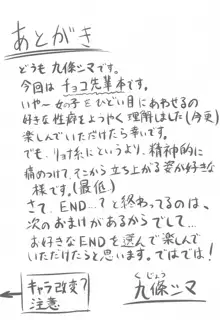 あとがき
どうも 九條シマです。
今回は チョコ先輩本です。
いや〜 女の子をひどい目にあわせるの
好きな性癖をようやく理解しました(今更)
楽しんでいただけたら幸いです。
でも、リョナ系にというより、精神的に
痛めつけて、そこから立ち上がる姿が好きな
様です。(最低)
さて、END...?と終わってるのは、
次のおまけがあるからでして...
お好きなENDを選んで楽しんで
いただけたらと思います。ではでは！
キャラ改変？
注意
くじょう
九條シマ